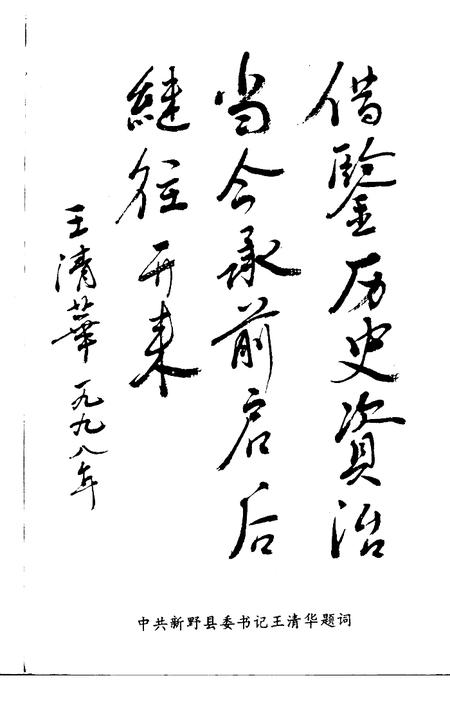 借鑒历史資治
当今承前启后
継往开来
王清華 一九九八年
中共新野县委书记王清华题词